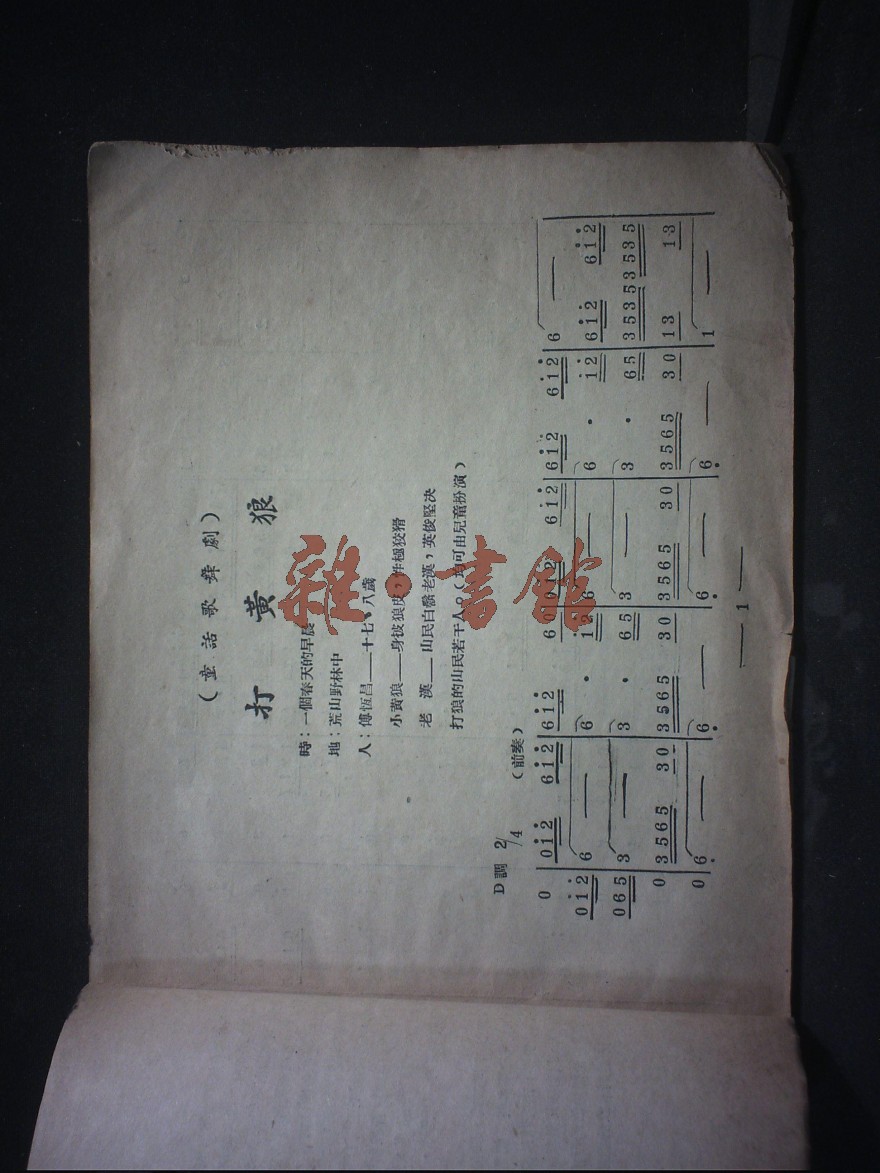 （童話歌舞劇）
打黃狼
時：一個春天的早晨
地：荒山野林中
人：傅恆昌——十七、八歲
小黃狼——身披狼皮，性極狡猾
老漢——山民白鬍老漢，英俊堅决
打狼的山民若干人。（均可由兒童扮演）
D調 2/4
（前奏）
0 | 0i̇2̇ 6i̇2̇ | 6i̇2̇ 60 | 0i̇2̇ 6i̇2̇ | 6i̇2̇ 6i̇2̇ | 6 — |
0i̇2̇ | 6 — | 6· i̇2̇ | 6 — | 6· i̇2̇ | 6i̇2̇ 6i̇2̇ |
065 | 3 — | 3· 65 | 3 — | 3· 65 | 3535 3535 |
0 | 3565 30 | 3565 30 | 3565 30 | 3565 30 | 13 13 |
0 | 6̣ — | 6̣ — | 6̣ — | 6̣ — | 1 — |
— 1 —
雜·書館